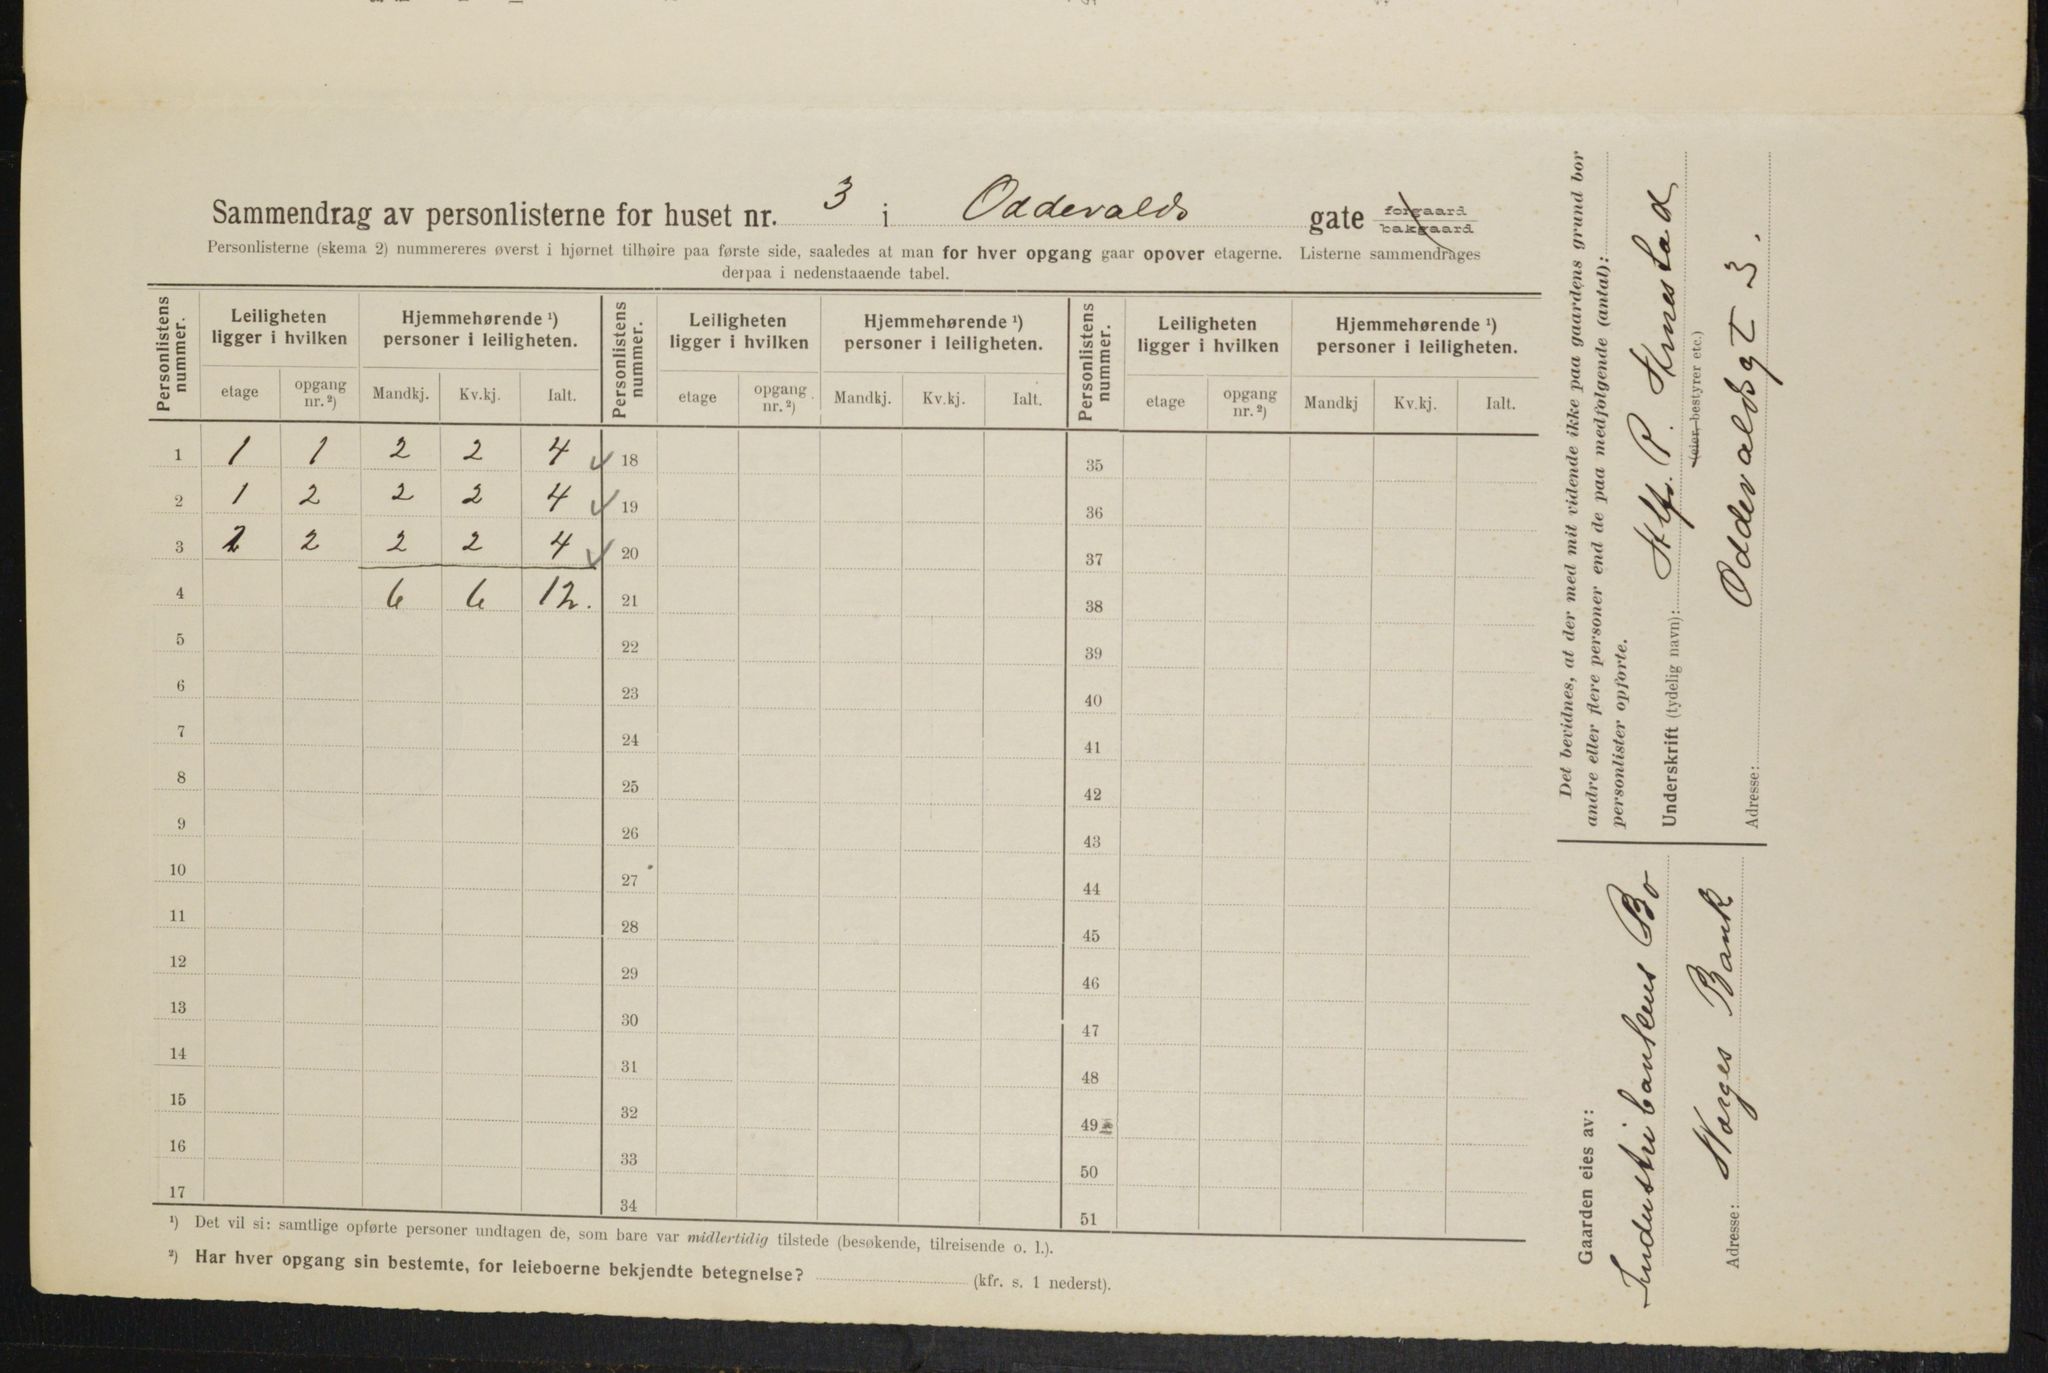 Sammendrag av personlisterne for huset nr. 3 i Oddevalds gate forgaard bakgaard
Personlisterne (skema 2) nummereres øverst i hjørnet tilhøire paa første side, saaledes at man for hver opgang gaar opover etagerne. Listerne sammendrages
derpaa i nedenstaaende tabel.
Personlistens nummer. Leiligheten ligger i hvilken Hjemmehørende ¹) personer i leiligheten. Personlistens nummer. Leiligheten ligger i hvilken Hjemmehørende ¹) personer i leiligheten. Personlistens nummer. Leiligheten ligger i hvilken Hjemmehørende ¹) personer i leiligheten.
etage opgang nr. ²) Mandkj. Kv.kj. Ialt. etage opgang nr. ²) Mandkj. Kv.kj. Ialt. etage opgang nr. ²) Mandkj Kv.kj. Ialt.
1 1 1 2 2 4 18 35
2 1 2 2 2 4 19 36
3 2 2 2 2 4 20 37
4 6 6 12. 21 38
5 22 39
6 23 40
7 24 41
8 25 42
9 26 43
10 27 44
11 28 45
12 29 46
13 30 47
14 31 48
15 32 49
16 33 50
17 34 51
¹) Det vil si: samtlige opførte personer undtagen de, som bare var midlertidig tilstede (besøkende, tilreisende o. l.).
²) Har hver opgang sin bestemte, for leieboerne bekjendte betegnelse? (kfr. s. 1 nederst).
Det bevidnes, at der med mit vidende ikke paa gaardens grund bor
andre eller flere personer end de paa medfølgende (antal):
personlister opførte.
Underskrift (tydelig navn): Alf. P.
(eier, bestyrer etc.)
Adresse: Oddevaldsgt 3.
Gaarden eies av:
Industribankens Bo
Adresse: Norges Bank